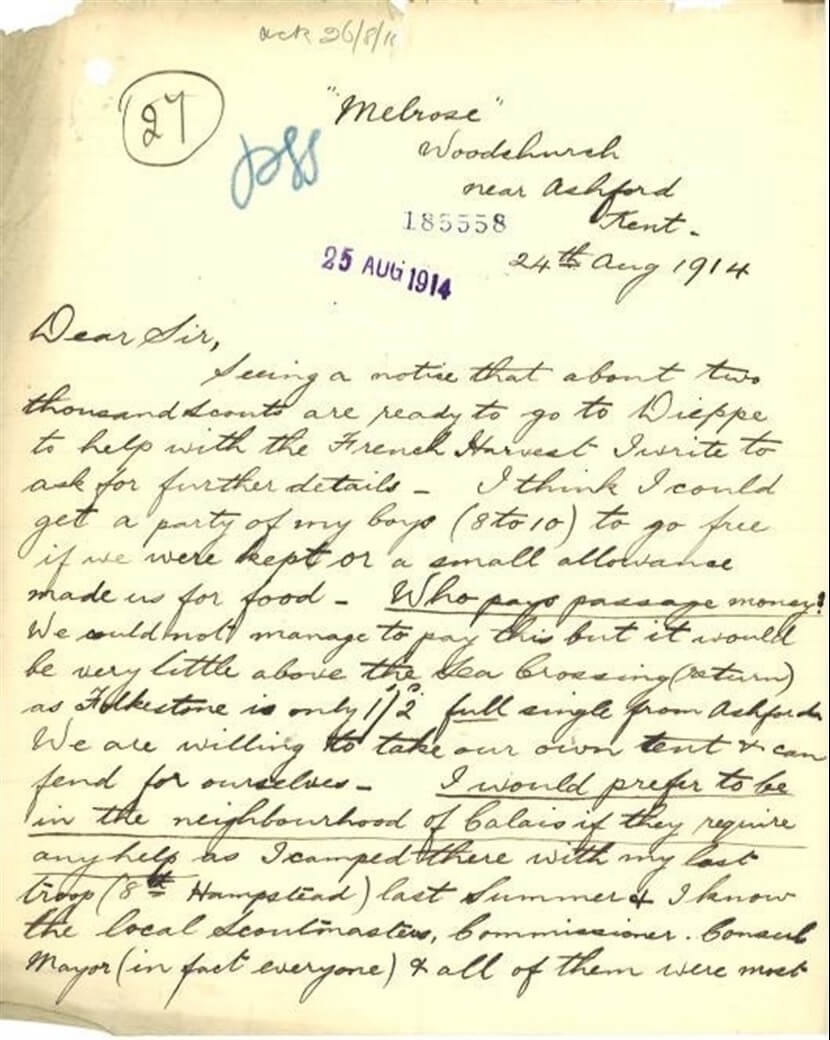 ack 26/8/
27
"Melrose"
Woodchurch
near Ashford
185558 Kent -
25 AUG 1914 24th Aug 1914
Dear Sir,
Seeing a notice that about two
thousand scouts are ready to go to Dieppe
to help with the French Harvest I write to
ask for further details - I think I could
get a party of my boys (8 to 10) to go free
if we were kept or a small allowance
made us for food - Who pays passage money?
We could not manage to pay this but it would
be very little above the Sea Crossing (return)
as Folkestone is only 1/2 full single from Ashford
We are willing to take our own tent & can
fend for ourselves - I would prefer to be
in the neighbourhood of Calais if they require
any help as I camped there with my last
troop (8th Hampstead) last Summer & I know
the local Scoutmasters, Commissioner. Consul
Mayor (in fact everyone) & all of them were most